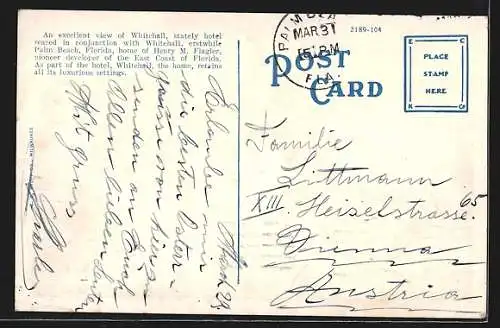 An excellent view of Whitehall, stately hotel
reared in conjunction with Whitehall, erstwhile
Palm Beach, Florida, home of Henry M. Flagler,
pioneer developer of the East Coast of Florida.
As part of the hotel, Whitehall, the home, retains
all its luxurious settings.
PALM BEACH
MAR 31
FLA.
2189-104
POST
CARD
PLACE
STAMP
HERE
MILWAUKEE
Erlaube mir
die besten Oster-
grüsse von hier zu
senden an Euch
Allen lieben Leute
Mit Gruss
Familie
Littmann
XIII. Heiselstrasse 65
Vienna
Austria